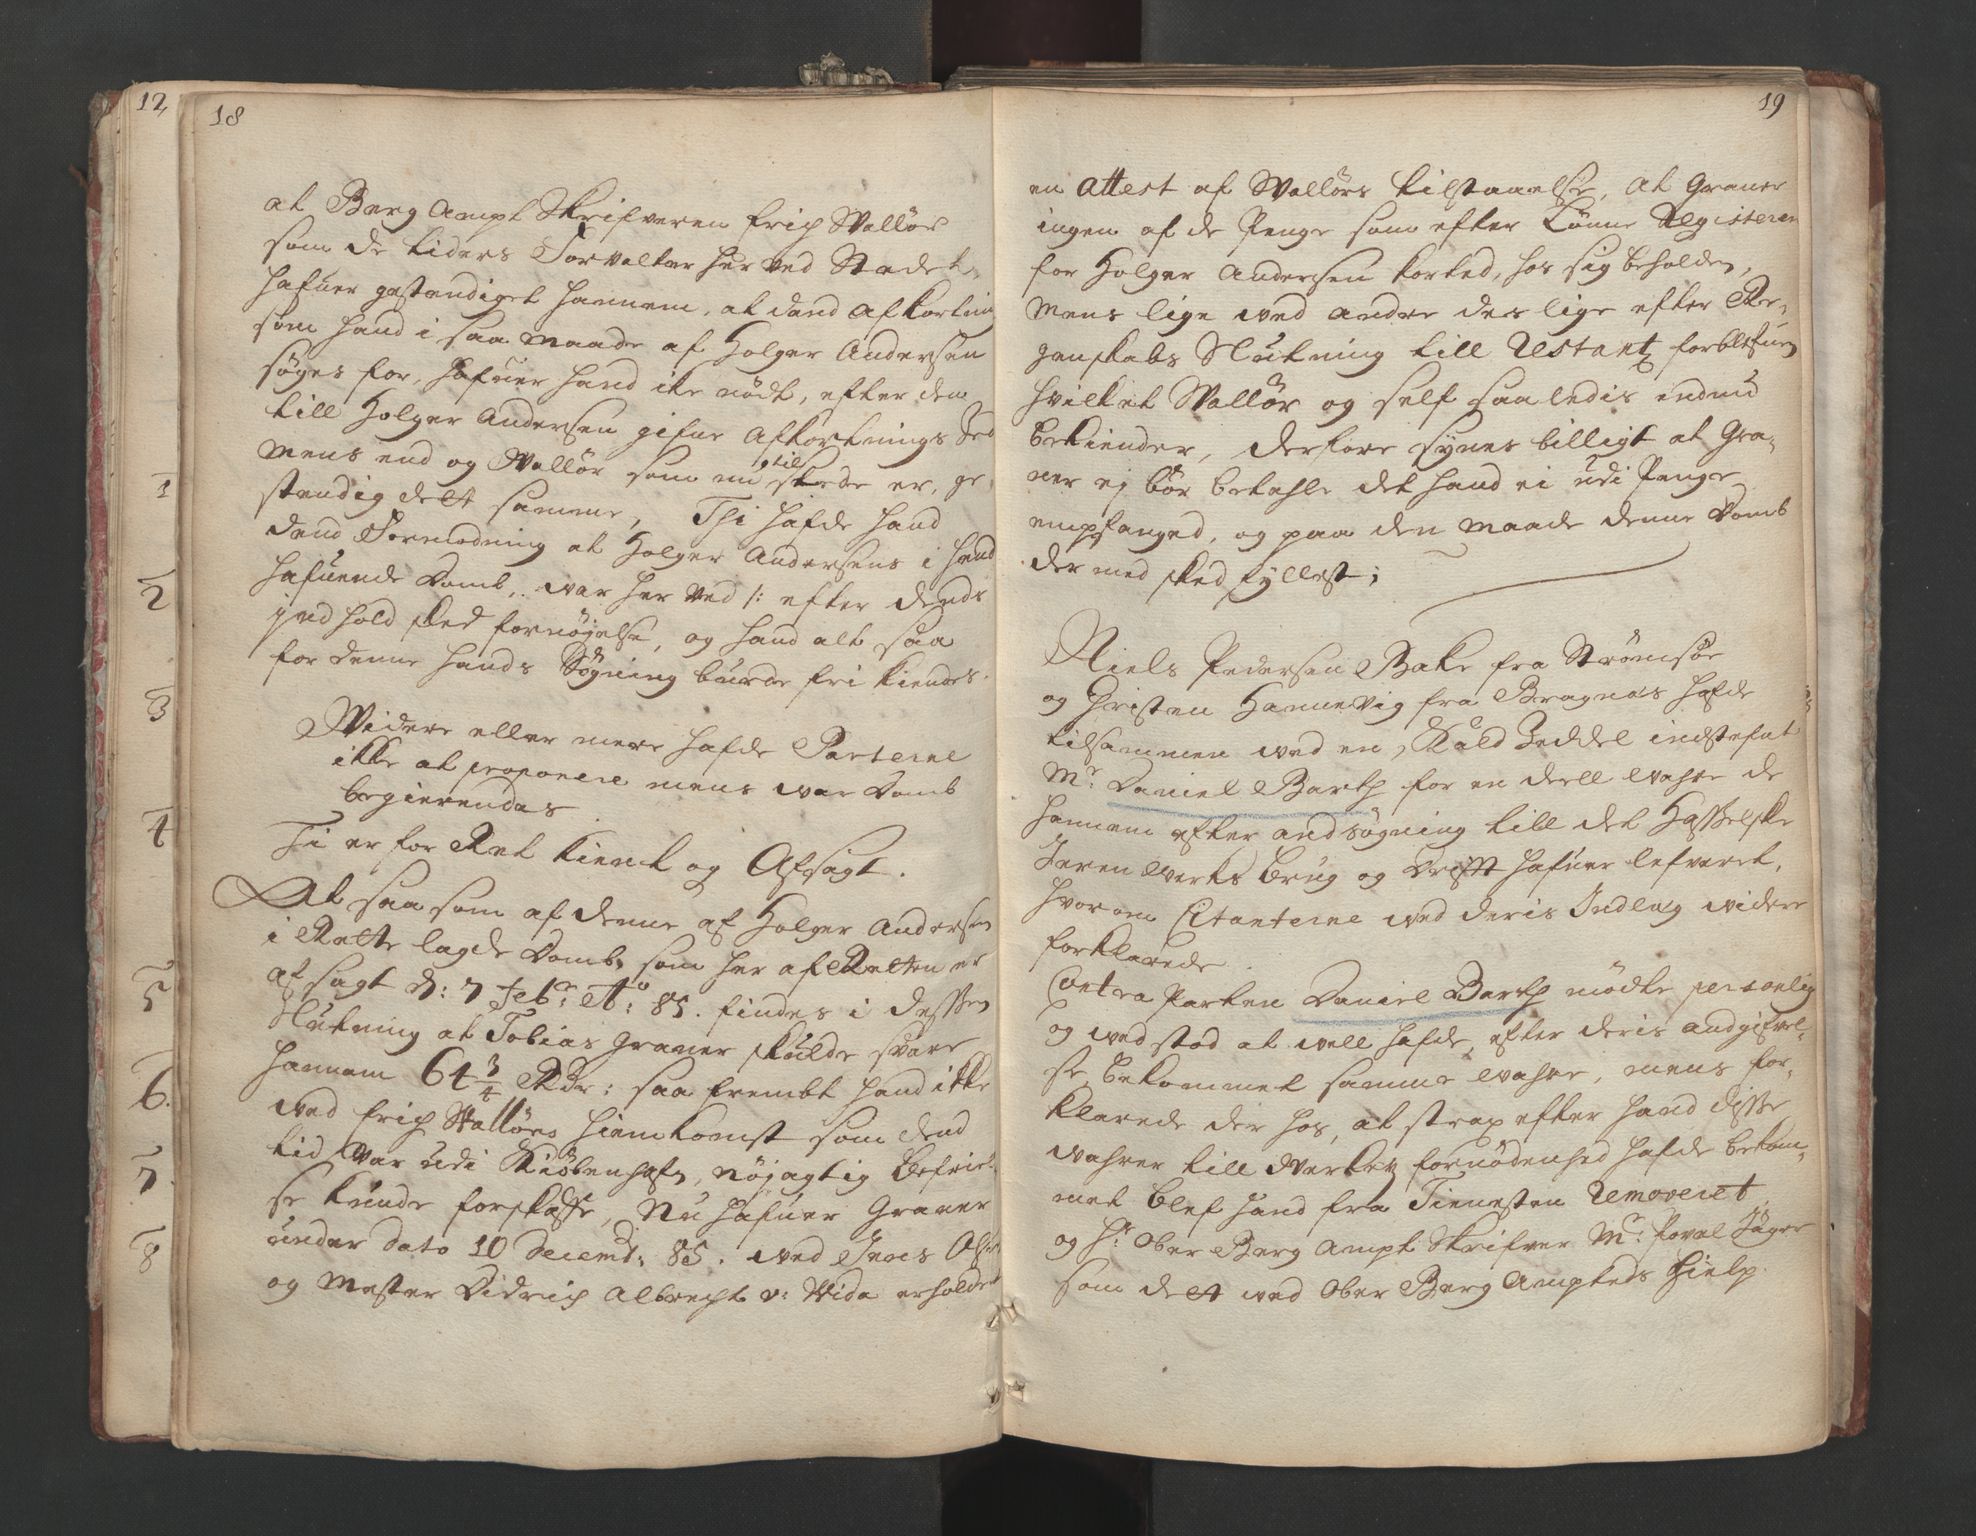 12
18
at Berg Ampt Skrifveren Erich Wallør
som de tiders Forvalter her ved Stedet,
hafuer gestendiget hannem, at dend Afkortning
som hand i saa maade af Holger Andersen
søges for, hafuer hand ike nødt, efter den
till Holger Andersen gifne Afkortnings Sed
mens end og Wallør som nu til stede er, ge,
stendig dett samme, Thi hafde hand
dend Formodning at Holger Andersens i hend
hafuende Domb, war her ved /: efter dends
jndhold sked fornøjelse, og hand alt saa
for denne hands Søgning burde fri kiendes.
Widere eller mere hafde Parterne
ikke at proponere mens war Domb
begierendes
Ti er for Ret kient og Afsagt.
At saa som af denne af Holger Andersen
i Rette lagde Domb, som her af Retten er
af sagt d: 7 Feb: A: 85. findes i dessen
Slutning at Tobias Graner skulde svare
hannem 64 3/4 Rdr: saa frembt hand ikke
ved Erich Walløres hiemkomst som dend
tid war udi Kiøbenhafn, nøjagtig Befriel,
se kunde forskaffe, Nu hafuer Graner
under dato 10 Decembr: 85. wed Jens Olsen
og Mester Didrich Albrecht v: Wida erholdet
1
2
3
4
5
6.
7.
8
19
en Attest af Wallørs tilstaaelse, At Graner
ingen af de Penge som efter Lønne Registeren
for Holger Andersen korted, hos sig beholden,
mens lige wed andre des lige efter Re,
genskabs Slutning till Restantz forblefuen
hvilket Wallør og self saaledis endnu
bekiender, derfore synes billigt at Gra,
ner ej bør betahle det hand ei udi Penge
empfanged, og paa den maade denne Domb
der med sked fyllest;
Niels Pedersen Bake fra Strømsøe
og Christen Hannevig fra Bragnæs hafde
tilsammen wed en Kald Zeddel indstefnt
Mr. Daniel Barth for en deell wahre de
hannem efter andsøgning till det Hasselske
Jeren Werks brug og Drifft hafuer lefveret,
hvor om Citanterne wed deris Indleg widere
forklarede.
Contra Parten Daniel Barth mødte personlig
og wedstod at well hafde, efter deris andgifvel,
se bekommet samme wahre, mens for,
klarede der hos, at strax efter hand disse
wahrer till Werketz fornødenhed hafde bekom,
met blef hand fra Tienesten Removeret,
og Hr. Ober Berg Ampt Skrifver Mr: Poval Jäger
som dett wed Ober Berg Amptets Hielp